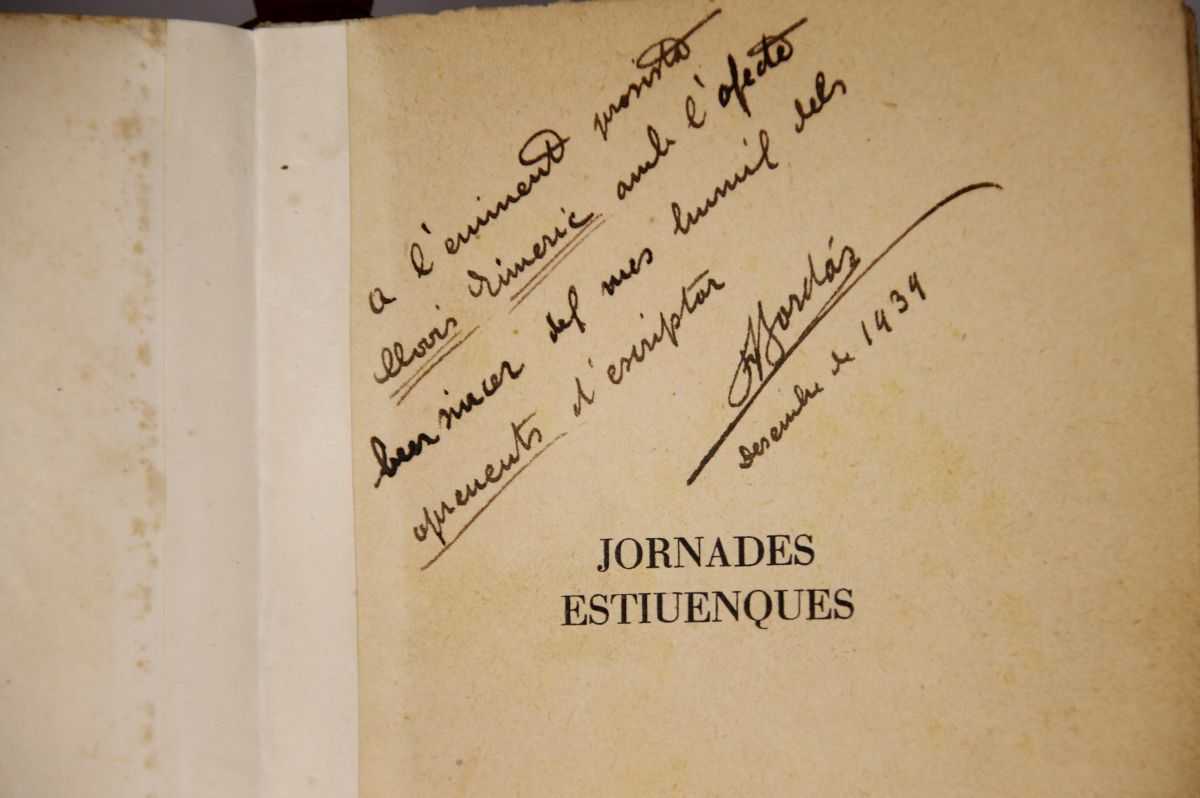 a l'eminent prosista
Clovis Eimeric amb l'afecte
ben sincer del mes humil dels
aprenents d'escriptor
Jordás
Desembre de 1939
JORNADES
ESTIUENQUES